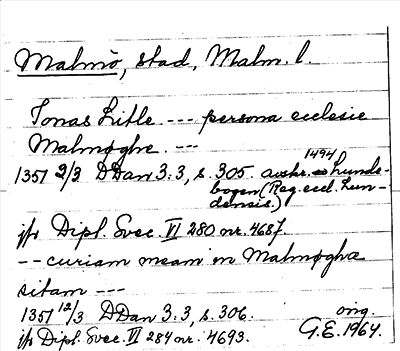 Malmö, stad, Malm. l.
Jonas Litle --- persona ecclesie
Malmøghe. ---
1351 2/3 DDan 3:3, s. 305. avskr. 1494 Lunde-
bogen (Reg. eccl. Lun-
densis.)
jfr Dipl. Svec. VI 280 nr. 4687.
-- curiam meam in Malmøghæ
sitam ---
1351 12/3 DDan 3:3, s. 306. orig.
jfr Dipl. Svec. VI 284 nr. 4693. G.E. 1964.